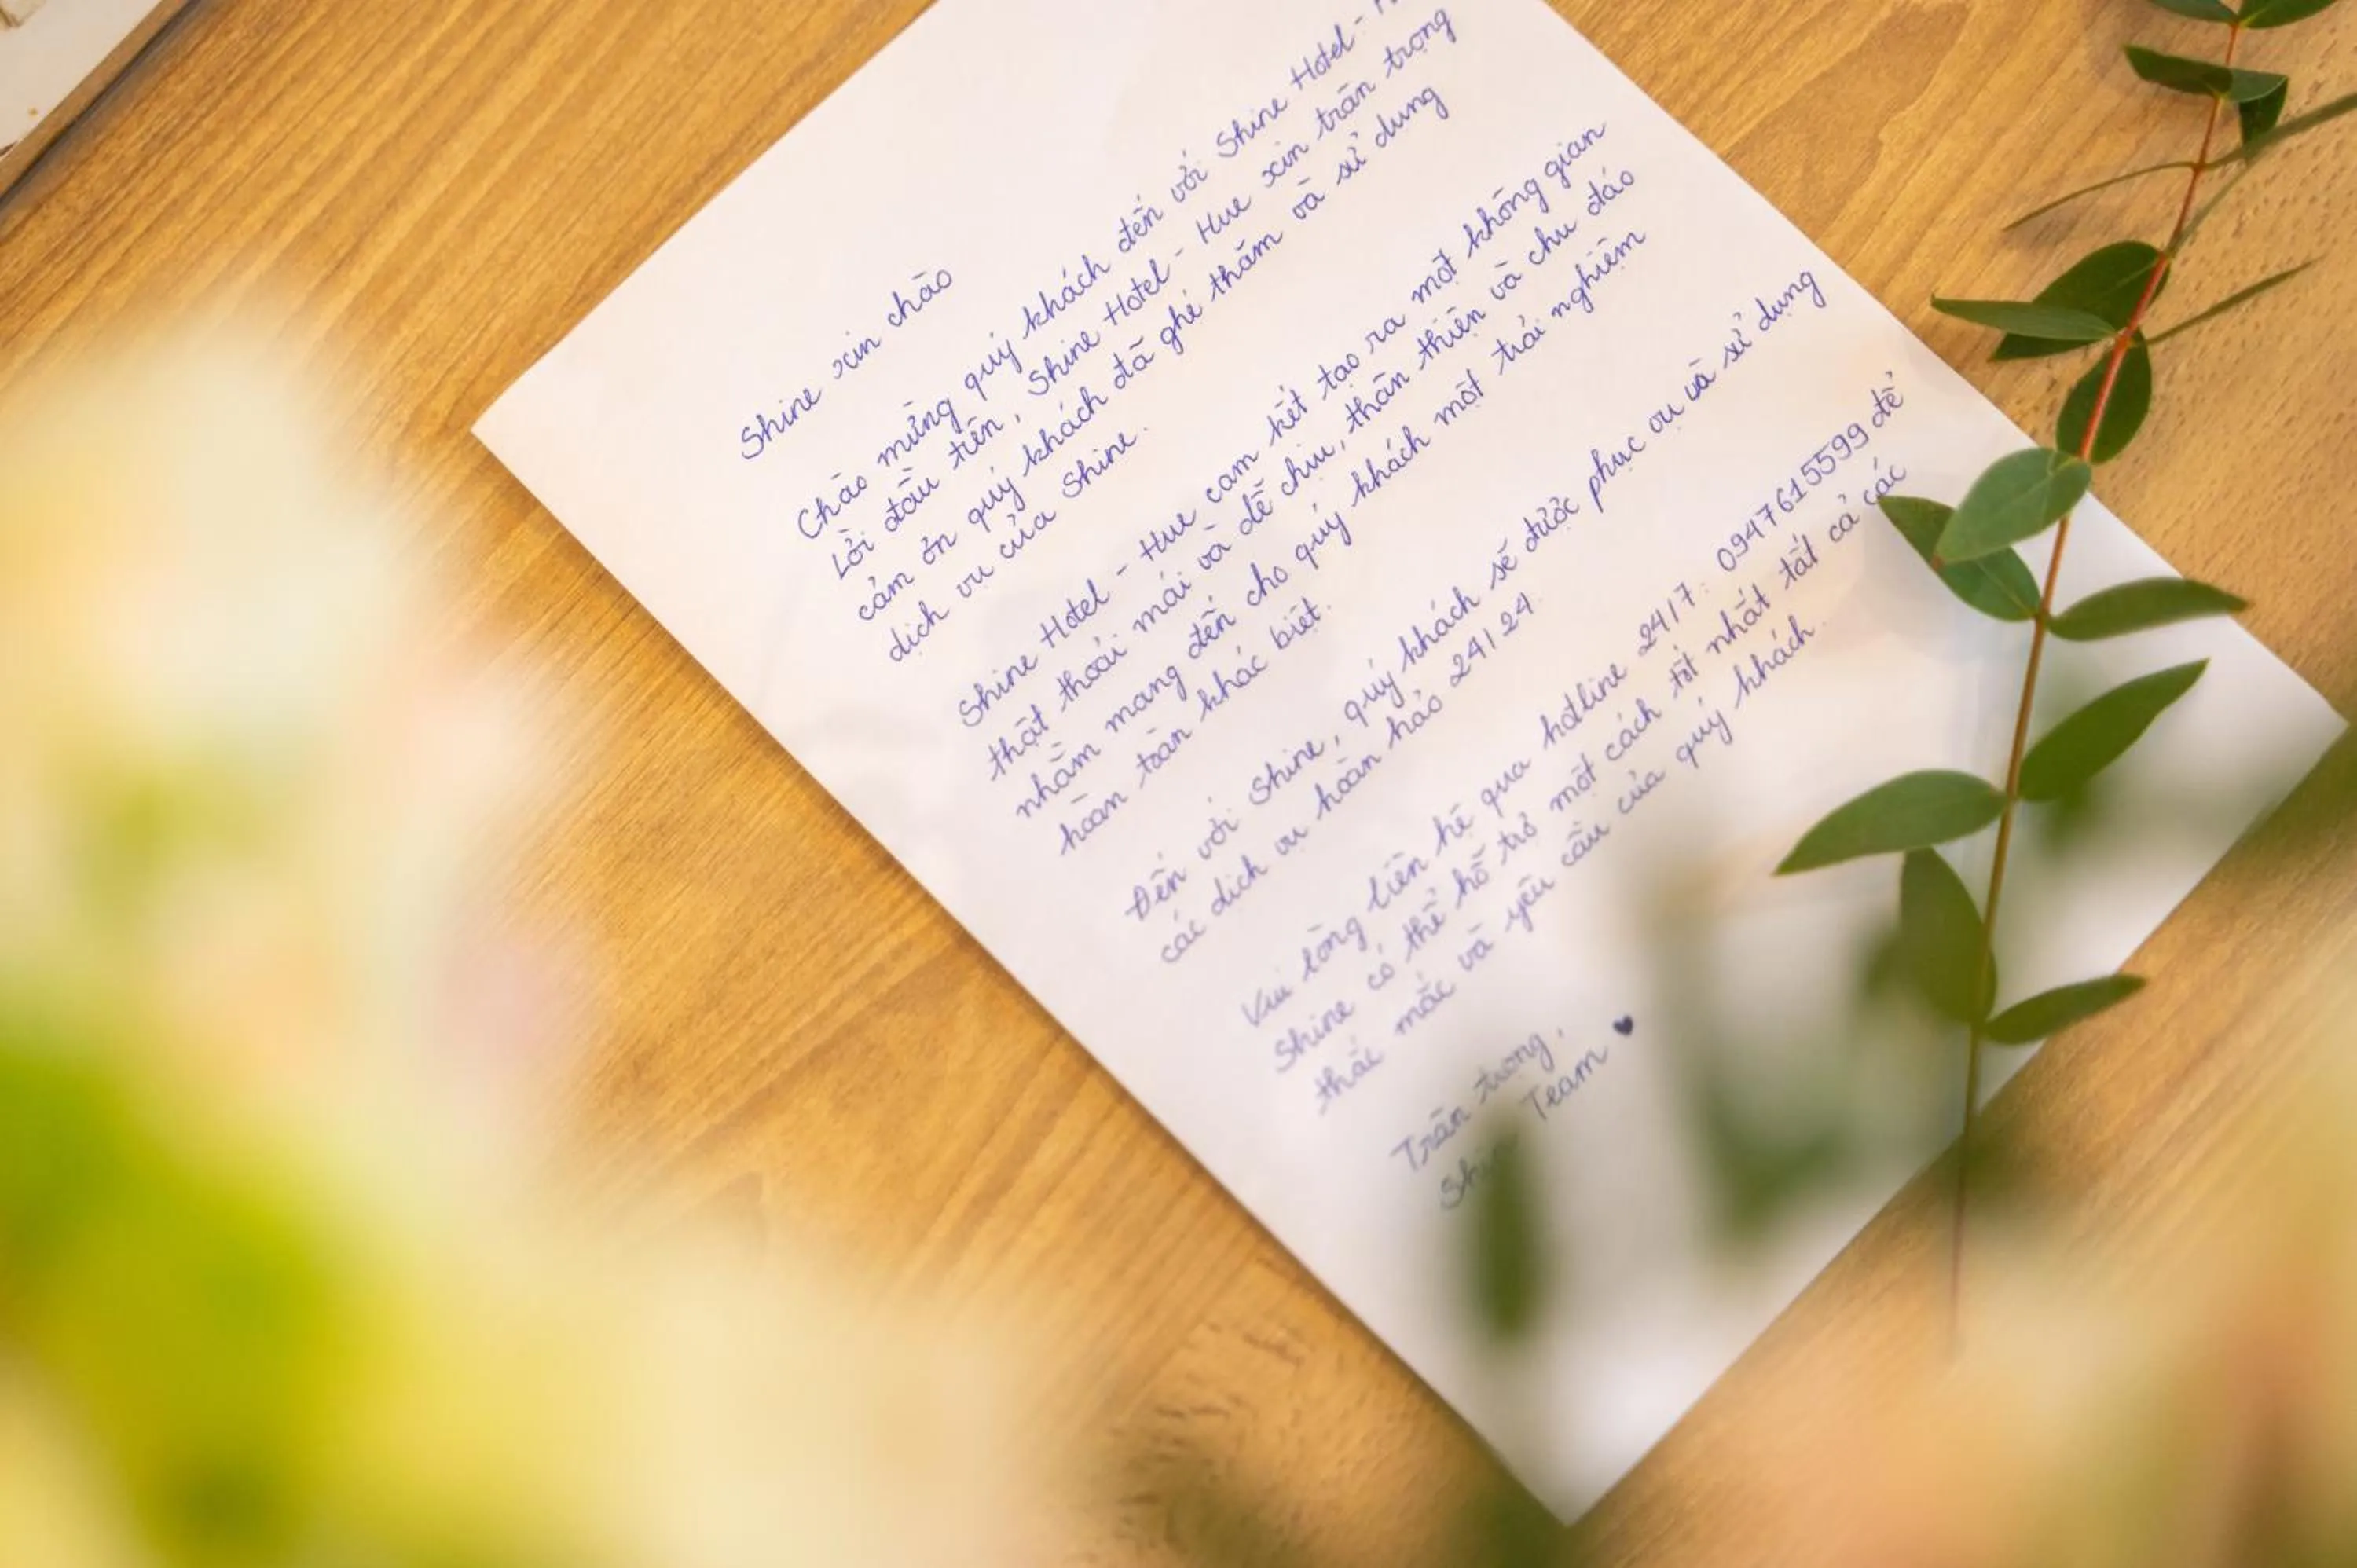 Shine xin chào
Chào mừng quý khách đến với Shine Hotel -
Lời đầu tiên, Shine Hotel - Hue xin trân trọng
cảm ơn quý khách đã ghé thăm và sử dung
dịch vụ của Shine.
Shine Hotel - Hue cam kết tạo ra một không gian
thật thoải mái và dễ chịu, thân thiện và chu đáo
nhằm mang đến cho quý khách một trải nghiệm
hoàn toàn khác biệt.
Đến với Shine, quý khách sẽ được phục vụ và sử dụng
các dịch vụ hoàn hảo 24/24.
Vui lòng liên hệ qua hotline 24/7: 0947615599 để
Shine có thể hỗ trợ một cách tốt nhất tất cả các
thắc mắc và yêu cầu của quý khách.
Trân trọng,
Team ♥